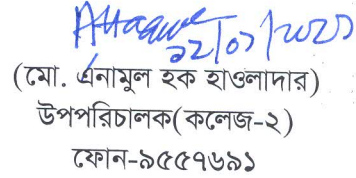 (মো. এনামুল হক হাওলাদার)
উপপরিচালক(কলেজ-২)
ফোন-৯৫৫৭৬৯১